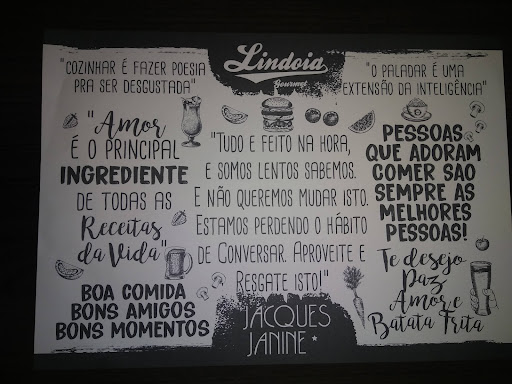 Lindoia
Gourmet
"COZINHAR É FAZER POESIA
PRA SER DESGUSTADA"
"O PALADAR É UMA
EXTENSÃO DA INTELIGÊNCIA"
"Amor
É O PRINCIPAL
INGREDIENTE
DE TODAS AS
Receitas
da Vida"
"TUDO E FEITO NA HORA,
E SOMOS LENTOS SABEMOS.
E NÃO QUEREMOS MUDAR ISTO.
ESTAMOS PERDENDO O HÁBITO
DE CONVERSAR. APROVEITE E
RESGATE ISTO!"
PESSOAS
QUE ADORAM
COMER SAO
SEMPRE AS
MELHORES
PESSOAS!
BOA COMIDA
BONS AMIGOS
BONS MOMENTOS
Te desejo
Paz
Amor e
Batata Frita
JACQUES
JANINE